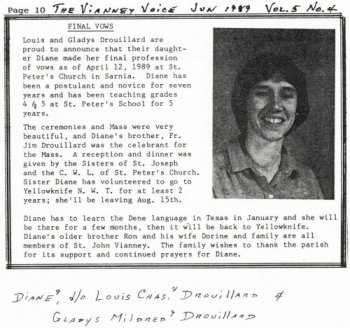 Page 10 The Vianney Voice Jun 1989 Vol. 5 No. 4
FINAL VOWS
Louis and Gladys Drouillard are
proud to announce that their daught-
er Diane made her final profession
of vows as of April 12, 1989 at St.
Peter's Church in Sarnia. Diane has
been a postulant and novice for seven
years and has been teaching grades
4 & 5 at St. Peter's School for 5
years.
The ceremonies and Mass were very
beautiful, and Diane's brother, Fr.
Jim Drouillard was the celebrant for
the Mass. A reception and dinner was
given by the Sisters of St. Joseph
and the C. W. L. of St. Peter's Church.
Sister Diane has volunteered to go to
Yellowknife N. W. T. for at least 2
years; she'll be leaving Aug. 15th.
Diane has to learn the Dene language in Texas in January and she will
be there for a few months, then it will be back to Yellowknife.
Diane's older brother Ron and his wife Dorine and family are all
members of St. John Vianney. The family wishes to thank the parish
for its support and continued prayers for Diane.
Diane, d/o Louis Chas. Drouillard &
Gladys Mildred Drouillard